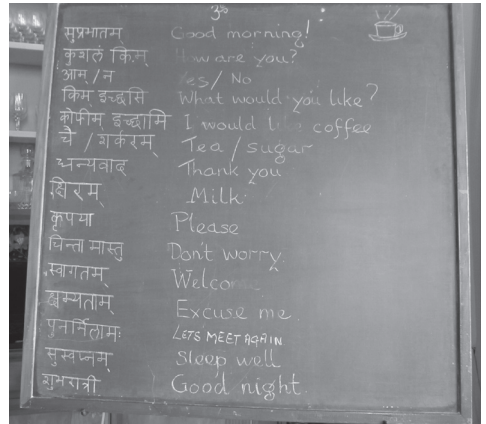 ॐ
सुप्रभातम् Good morning!
कुशलं किम् How are you?
आम् / न Yes / No
किम् इच्छसि What would you like?
कोफीम् इच्छामि I would like coffee
चै / शर्करम् Tea / sugar
धन्यवाद Thank you
क्षिरम् Milk
कृपया Please
चिन्ता मास्तु Don't worry.
स्वागतम् Welcome
क्षम्यताम् Excuse me.
पुनर्मिलामः LETS MEET AGAIN
सुस्वप्नम् Sleep well
शुभरात्री Good night.